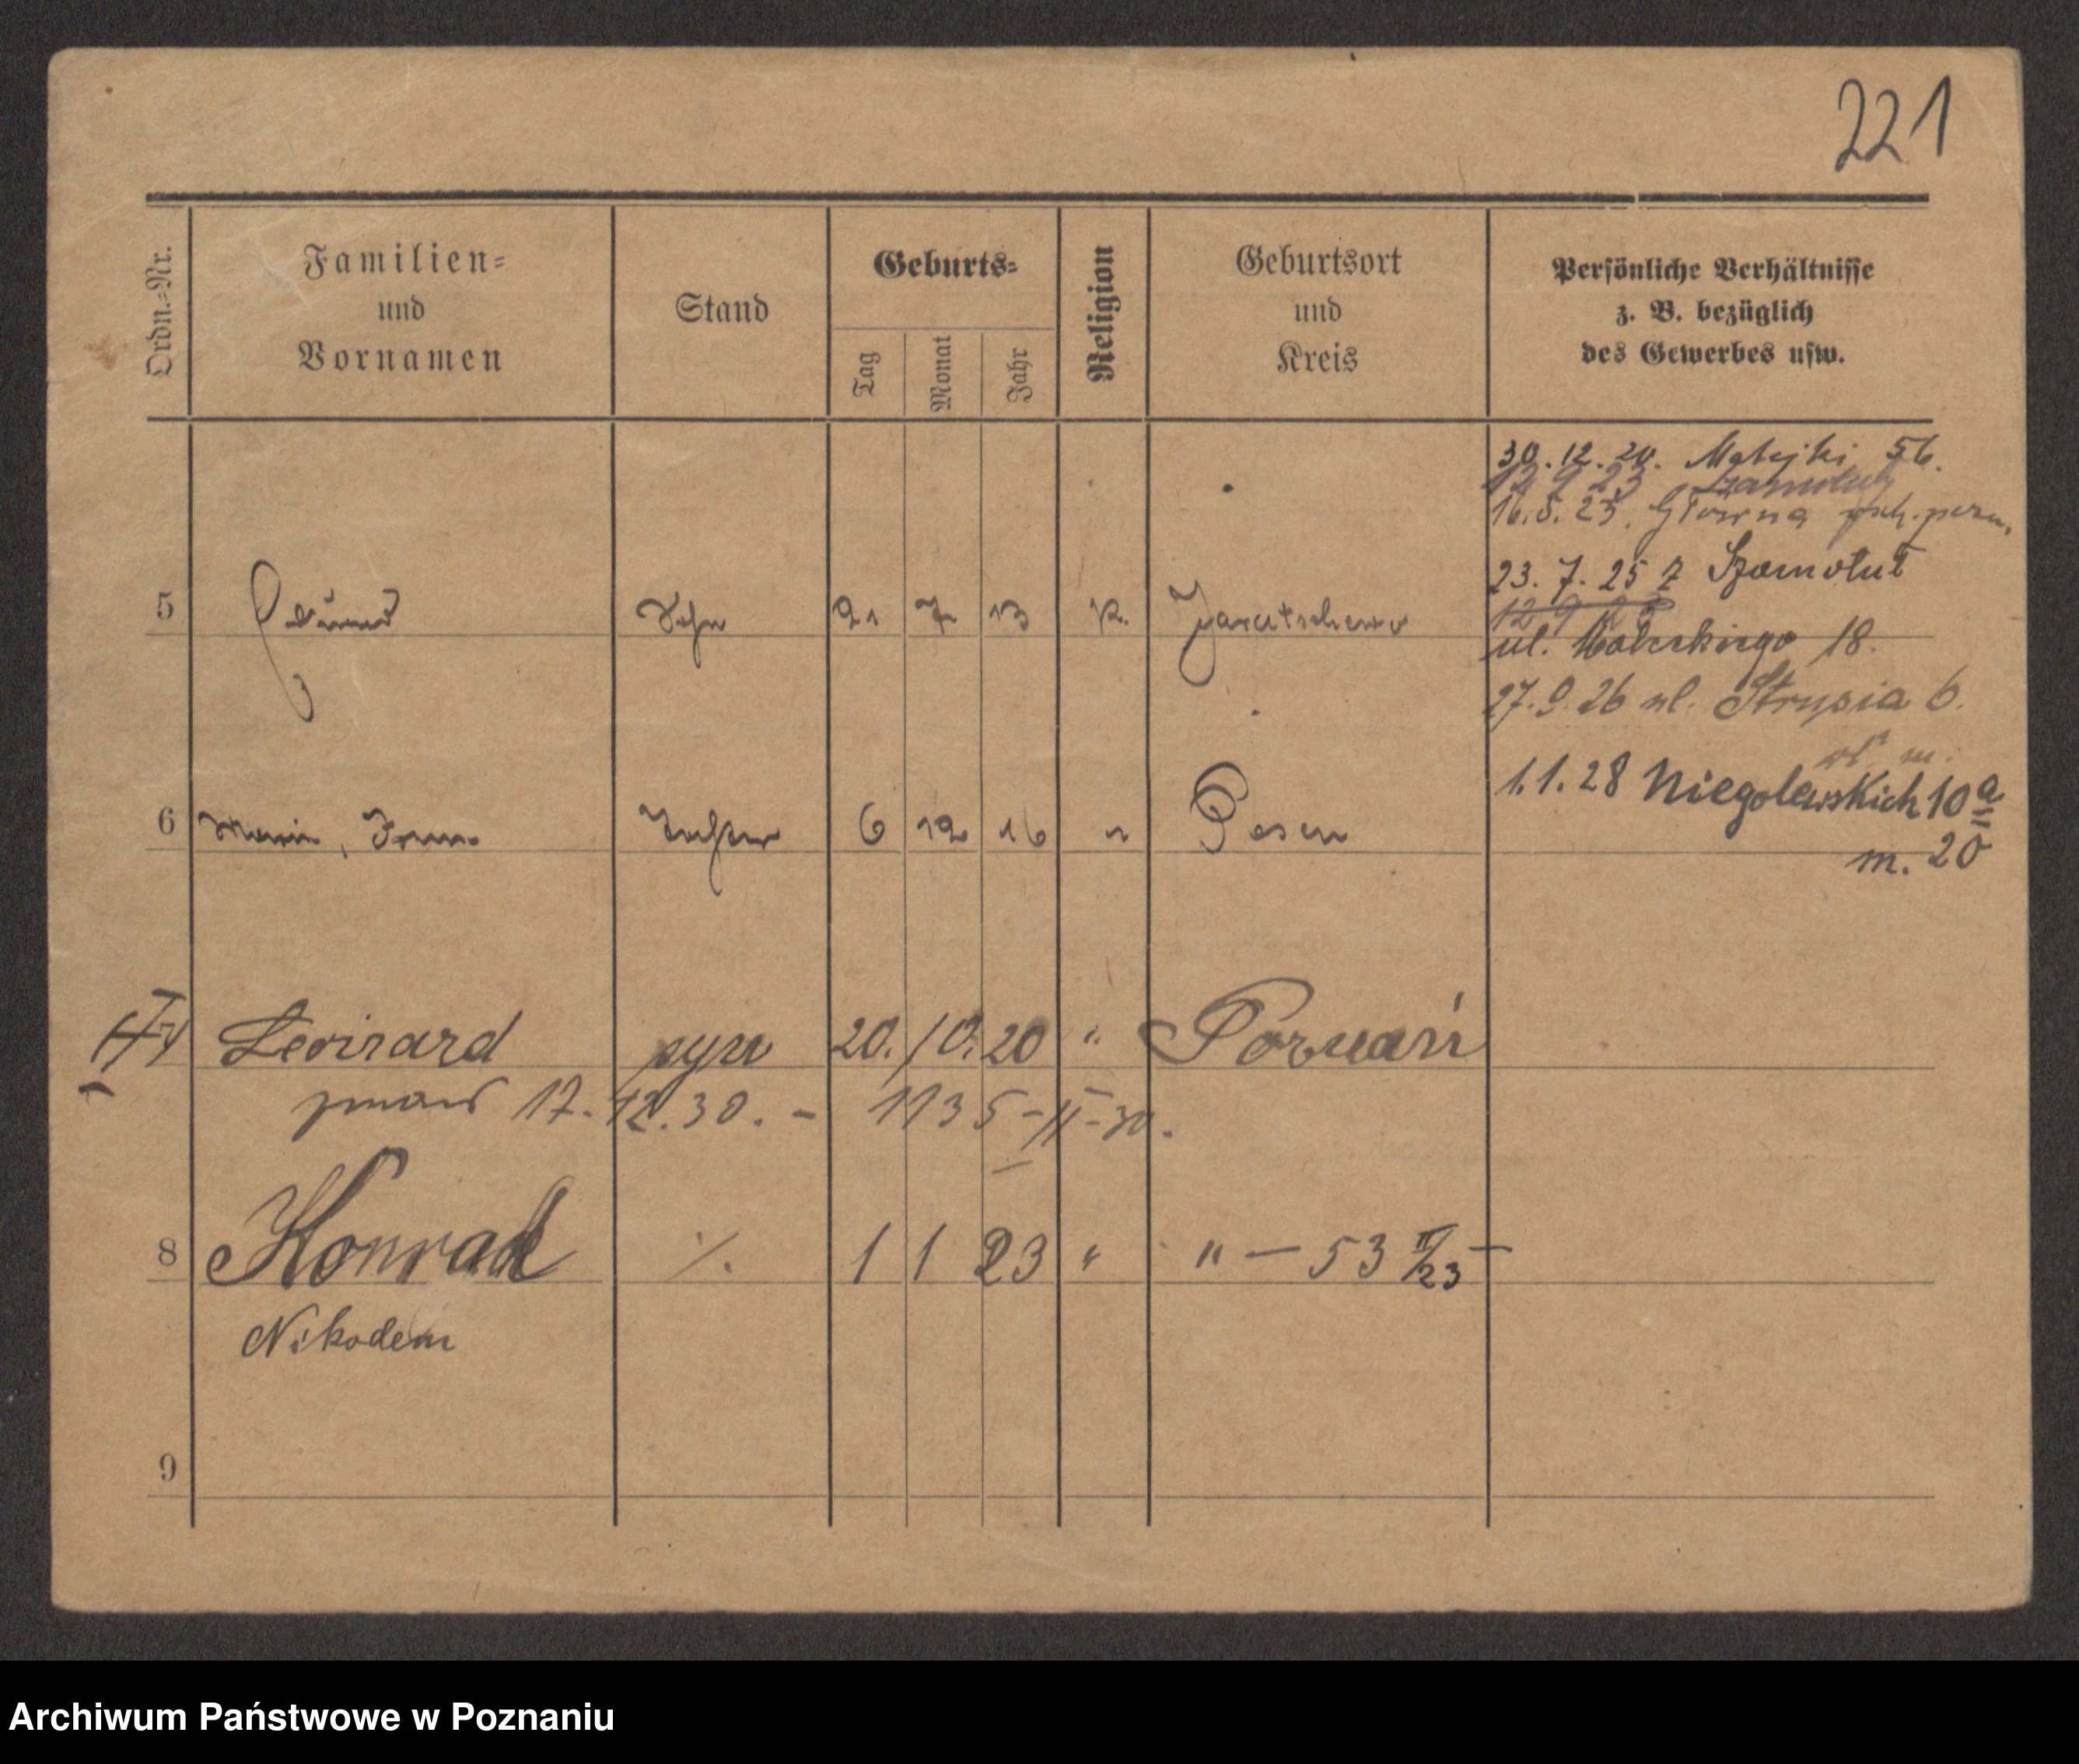 221
Ordn.-Nr.
Familien-
und
Vornamen
Stand
Geburts-
Tag
Monat
Jahr
Religion
Geburtsort
und
Kreis
Persönliche Verhältnisse
z. B. bezüglich
des Gewerbes usw.
30.12.20. Matejki 56.
12 9 23 Szamotuły
16.5.23. Główna
23. 7. 25 z Szamotuł
12 9 25
5 Sohn 21 7 13 k. Jarotschewo
ul. 18.
27.9.26 ul. Strusia 6.
1.1.28 Niegolewskich 10a
m. 20
6 Maria, Irena Tochter 6 12 16 " Posen
7 Leonard syn 20. 10. 20 " Poznań
zmarł 17.12.30. - 1135-II-30.
8 Konrad ·/. 1 1 23 " " — 53 II/23 —
Nikodem
9
Archiwum Państwowe w Poznaniu